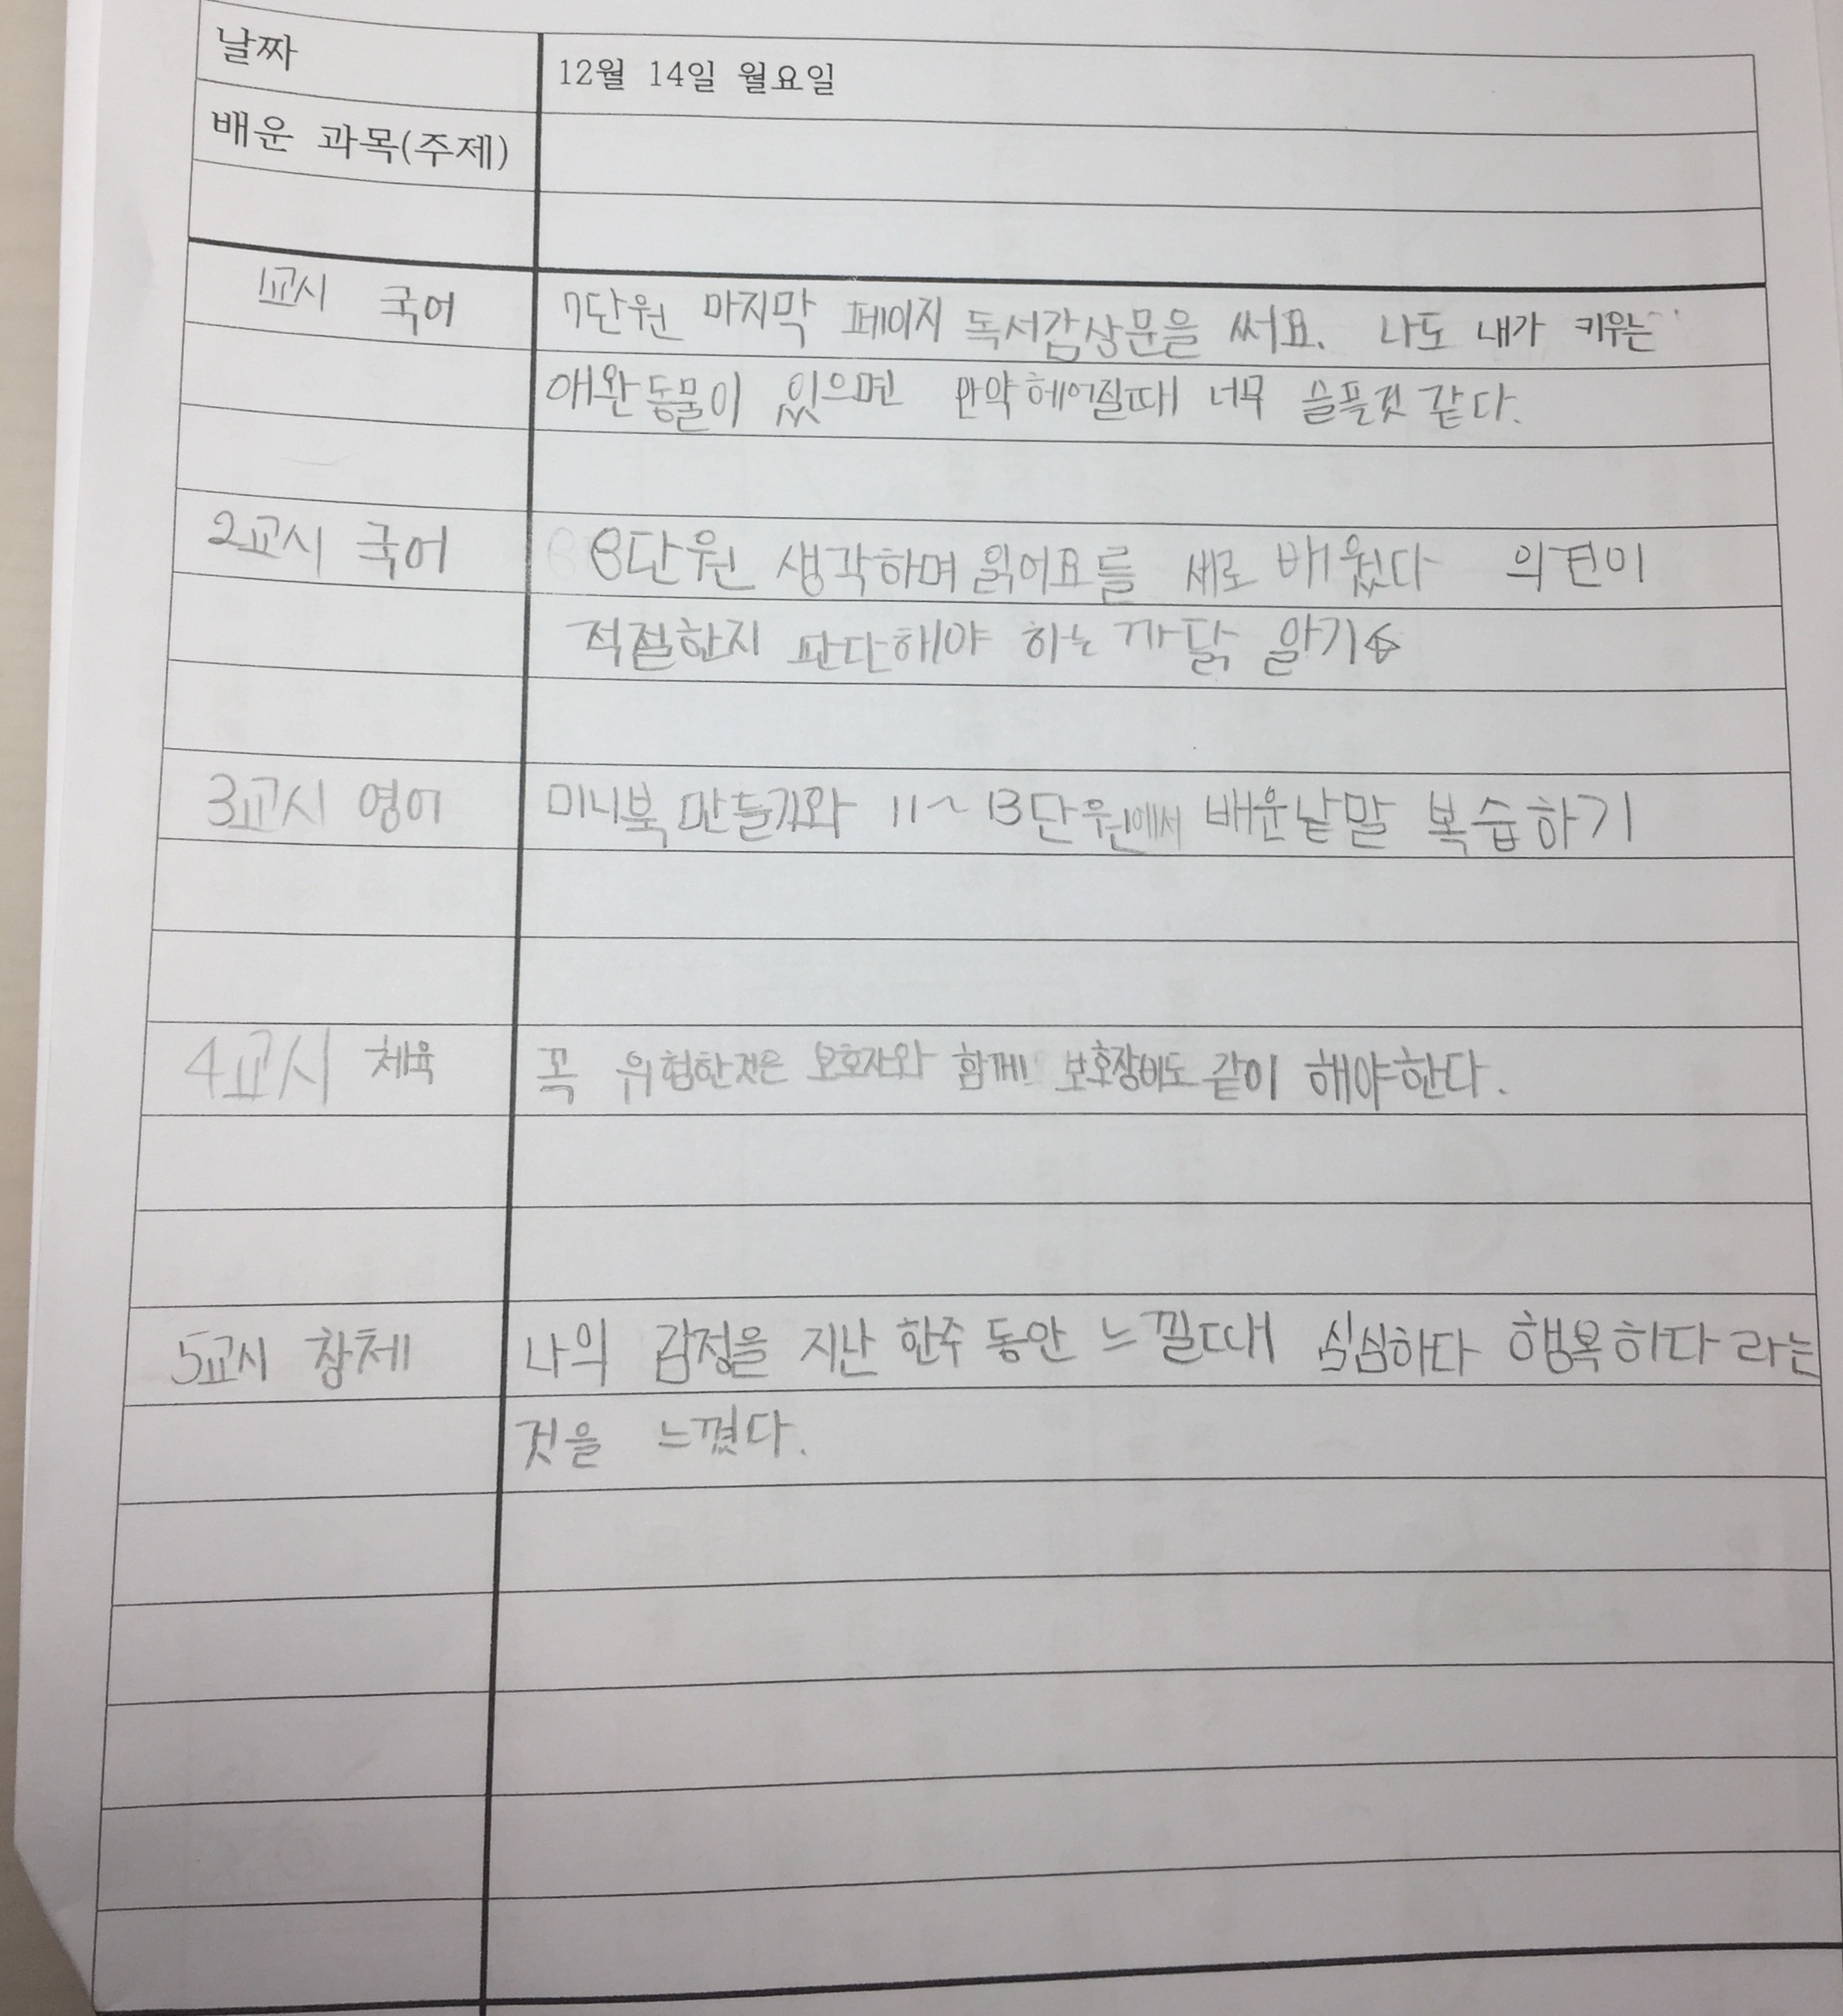 날짜 12월 14일 월요일
배운 과목(주제)
1교시 국어 7단원 마지막 페이지 독서감상문을 써요. 나도 내가 키우는
애완동물이 있으면 만약 헤어질때 너무 슬플것 같다.
2교시 국어 8단원 생각하며 읽어요를 새로 배웠다 의견이
적절한지 판단해야 하는 까닭 알기
3교시 영어 미니북 만들기와 11~13단원에서 배운낱말 복습하기
4교시 체육 꼭 위험한것은 보호자와 함께! 보호장비도 같이 해야한다.
5교시 창체 나의 감정을 지난 한주 동안 느낄때 심심하다 행복하다 라는
것을 느꼈다.